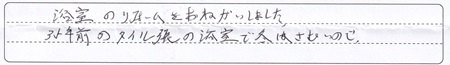 浴室のリホームをおねがいしました。
35年前のタイル張の浴室で冬はさむいので、